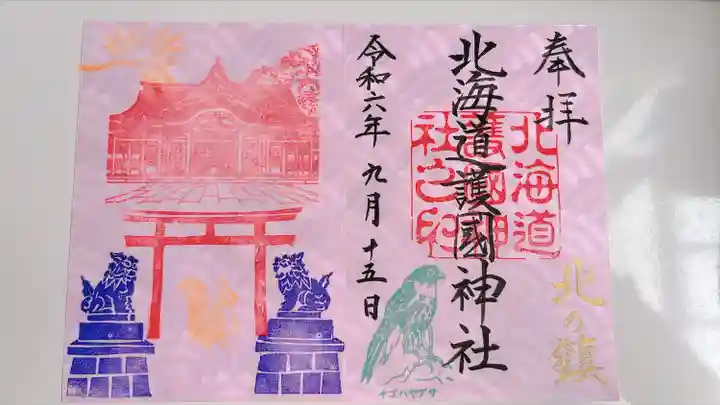 奉拝
北海道護國神社
北海道護國神社之印
北の鎮
令和六年九月十五日
チゴハヤブサ